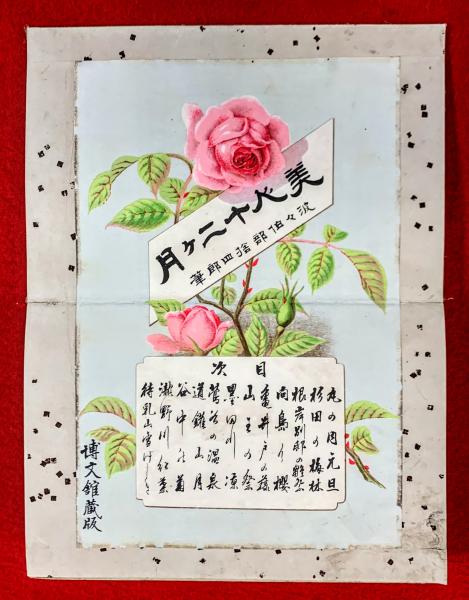 美人十二ヶ月
波々伯部捨四郎筆
目次
丸の内元旦
杉田の梅林
根岸別邸の雛祭
向島の櫻
龜井戸の藤
山王の祭
墨田川の凉
の温泉
道灌山の月
谷中の菊
瀧野川の紅葉
待乳山雪げしき
博文舘藏版